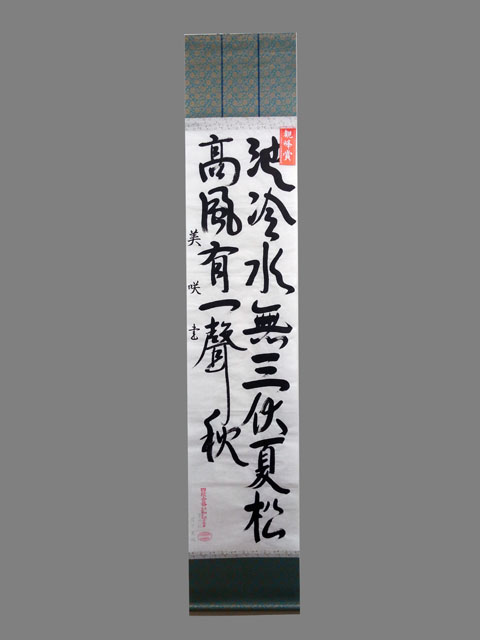 池冷水無三伏夏松
高風有一聲秋
美咲書
親峰賞